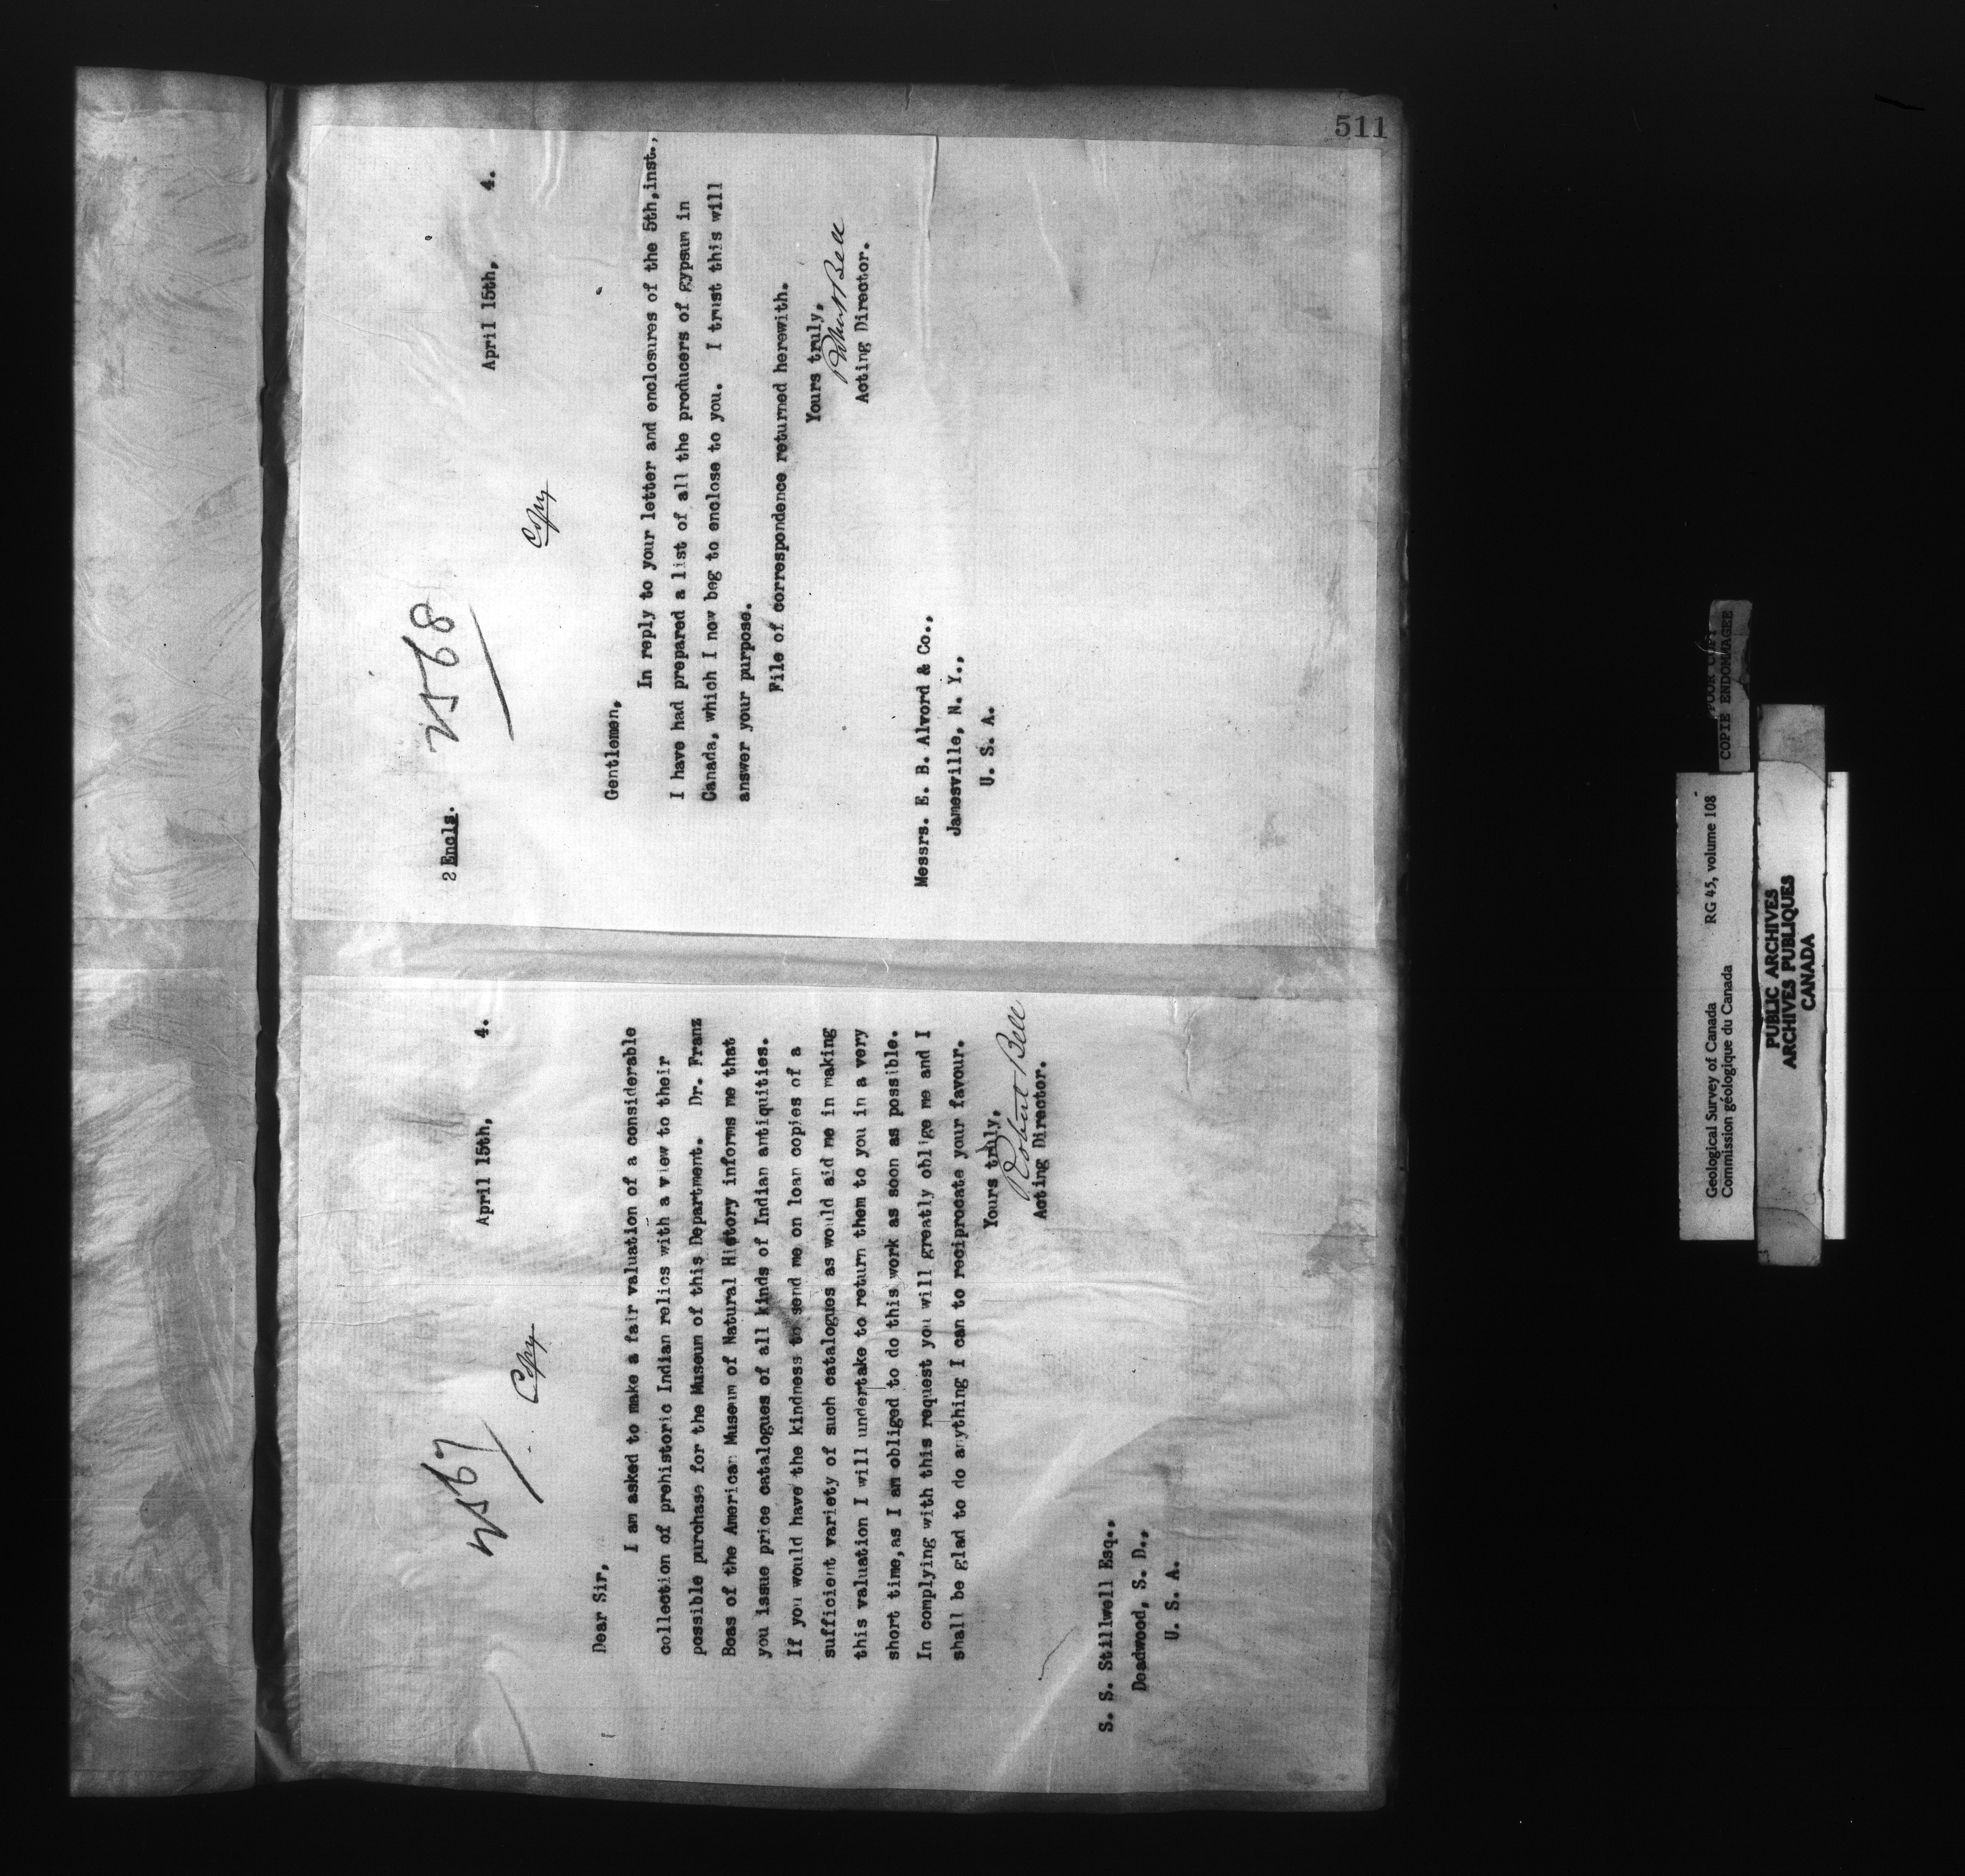 2567
Copy
April 15th, 4.
Dear Sir,
I am asked to make a fair valuation of a considerable
collection of prehistoric Indian relics with a view to their
possible purchase for the Museum of this Department. Dr. Franz
Boas of the American Museum of Natural History informs me that
you issue price catalogues of all kinds of Indian antiquities.
If you would have the kindness to send me on loan copies of a
sufficient variety of such catalogues as would aid me in making
this valuation I will undertake to return them to you in a very
short time, as I am obliged to do this work as soon as possible.
In complying with this request you will greatly oblige me and I
shall be glad to do anything I can to reciprocate your favour.
Yours truly,
Robert Bell
Acting Director.
S. S. Stillwell Esq.,
Deadwood, S. D.,
U. S. A.
511
2 Encls.
2568
Copy
April 15th, 4.
Gentlemen,
In reply to your letter and enclosures of the 5th,inst.,
I have had prepared a list of all the producers of gypsum in
Canada, which I now beg to enclose to you. I trust this will
answer your purpose.
File of correspondence returned herewith.
Yours truly,
Robert Bell
Acting Director.
Messrs. E. B. Alvord & Co.,
Jamesville, N. Y.,
U. S. A.
Geological Survey of Canada RG 45, volume 108
Commission géologique du Canada
POOR COPY
COPIE ENDOMMAGEE
PUBLIC ARCHIVES
ARCHIVES PUBLIQUES
CANADA